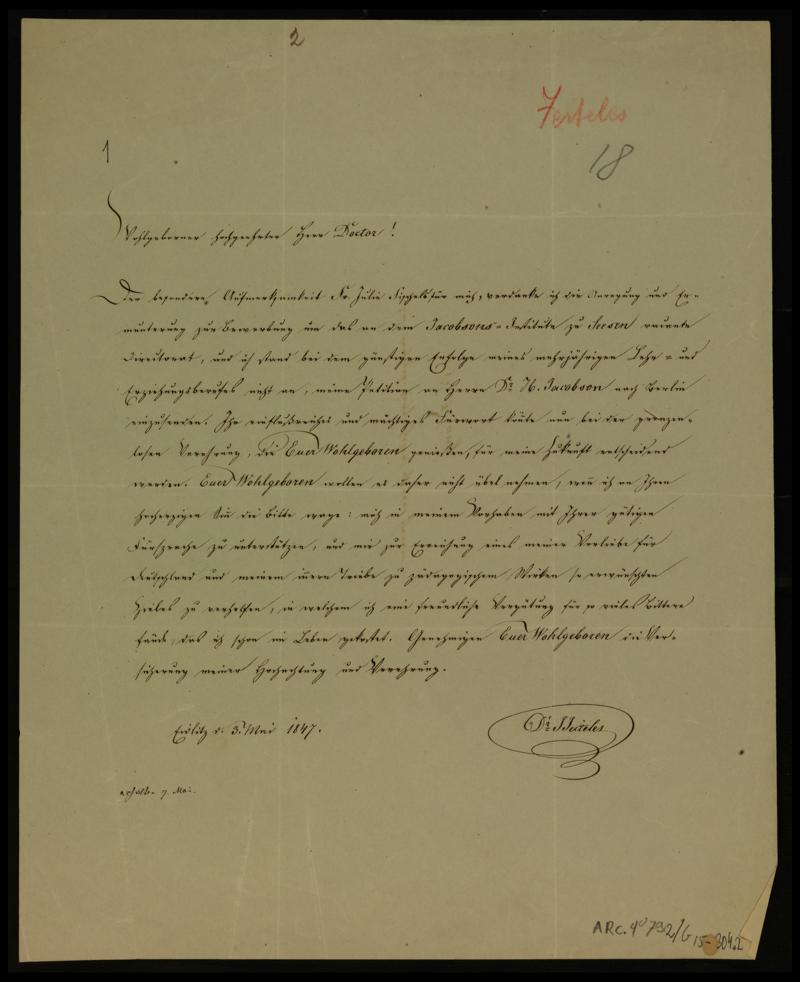 2
Jeiteles
18
1
Wohlgeborner hochgeehrter Herr Doctor!
Der besondern Aufmerksamkeit Fr. Julie Fischels für mich, verdanke ich die Anregung und Er=
munterung zur Bewerbung um das an dem Jacobsons=Institute zu Seesen vacante
Directorat, und ich stand bei dem günstigen Erfolge meines mehrjährigen Lehr= und
Erziehungsberufes nicht an, meine Petition an Herrn Dr. H. Jacobson nach Berlin
einzusenden. Ihr einflußreiches und mächtiges Fürwort könte nun bei der grenzen=
losen Verehrung, die Euer Wohlgeboren genießen, für meine Zukunft entscheidend
werden. Euer Wohlgeboren wollen es daher nicht übel nehmen, wen ich an Ihren
hochherzigen Sin die Bitte wage: mich in meinem Vorhaben mit Ihrer gütigen
Fürsprache zu unterstützen, und mir zur Erreichung eines meiner Vorliebe für
Deutschland und meinem innern Triebe zu pädagogischem Wirken so erwünschten
Zieles zu verhelfen, in welchem ich eine freundliche Vergütung für so vieles Bittere
fände, das ich schon im Leben gekostet. Genehmigen Euer Wohlgeboren die Ver=
sicherung meiner Hochachtung und Verehrung.
Eidlitz d. 3. Mai 1847.
Dr. J Jeiteles
erhalten 7. Mai.
ARC. 4° 792/G 15-304.2